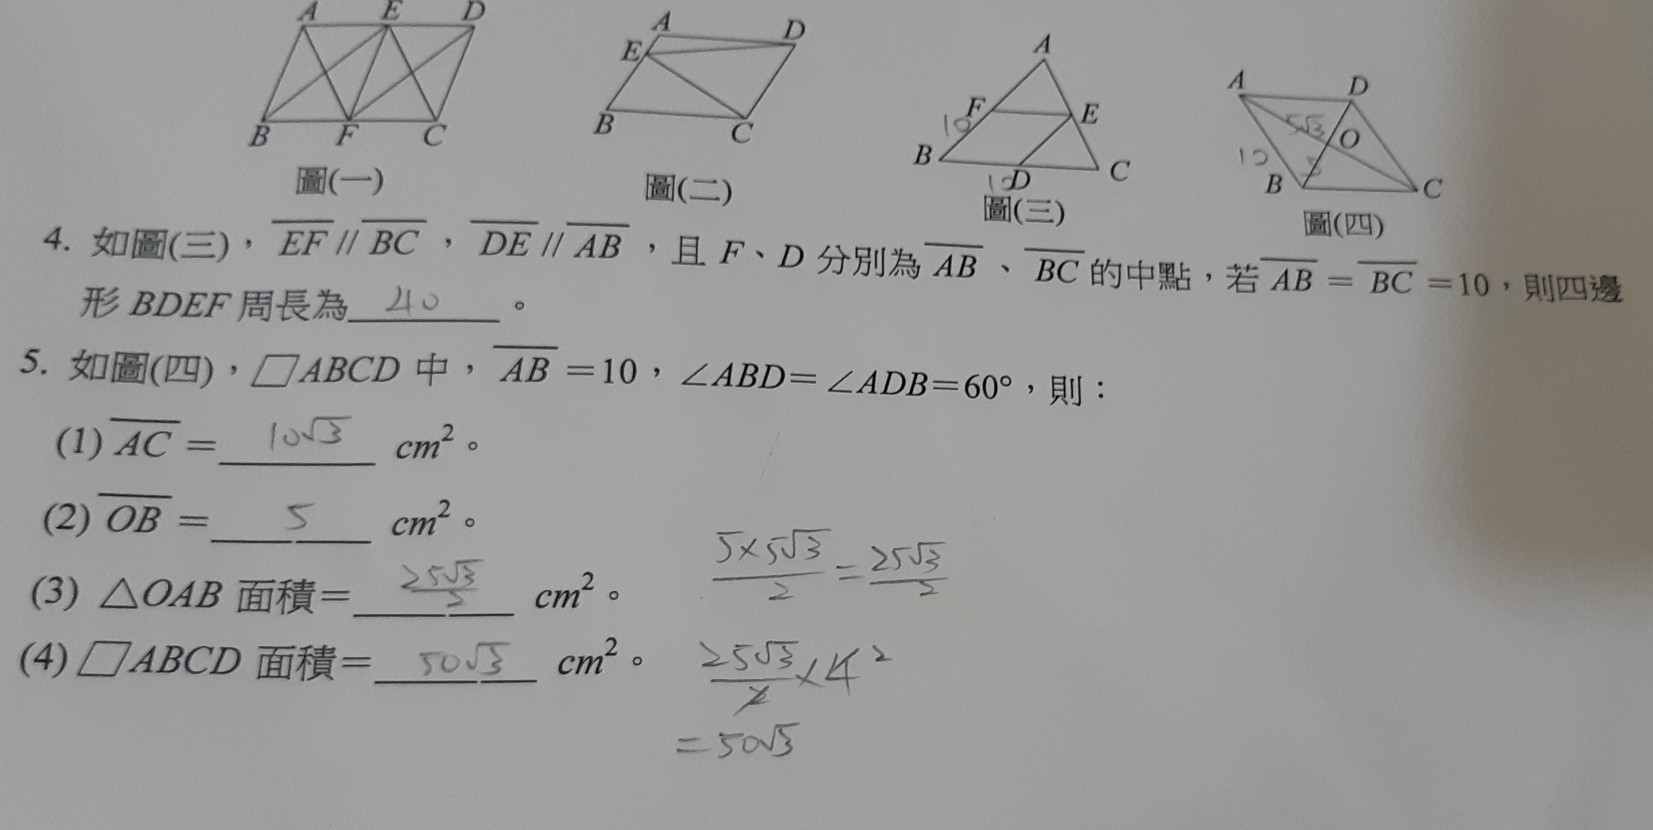 A E D
B F C
圖(一)
A D
E
B C
圖(二)
A
F E
10
B D C
10
圖(三)
A D
5√3 O
10 5
B C
圖(四)
4. 如圖(三)，EF // BC ，DE // AB ，且 F、D 分別為 AB 、BC 的中點，若 AB = BC =10，則四邊
形 BDEF 周長為 40 。
5. 如圖(四)，▱ABCD 中， AB =10，∠ABD=∠ADB=60°，則：
(1) AC = 10√3 cm²。
(2) OB = 5 cm²。
(3) △OAB 面積= 25√3/2 cm²。
5×5√3/2 = 25√3/2
(4) ▱ABCD 面積= 50√3 cm²。
25√3/2 × 4 2
= 50√3